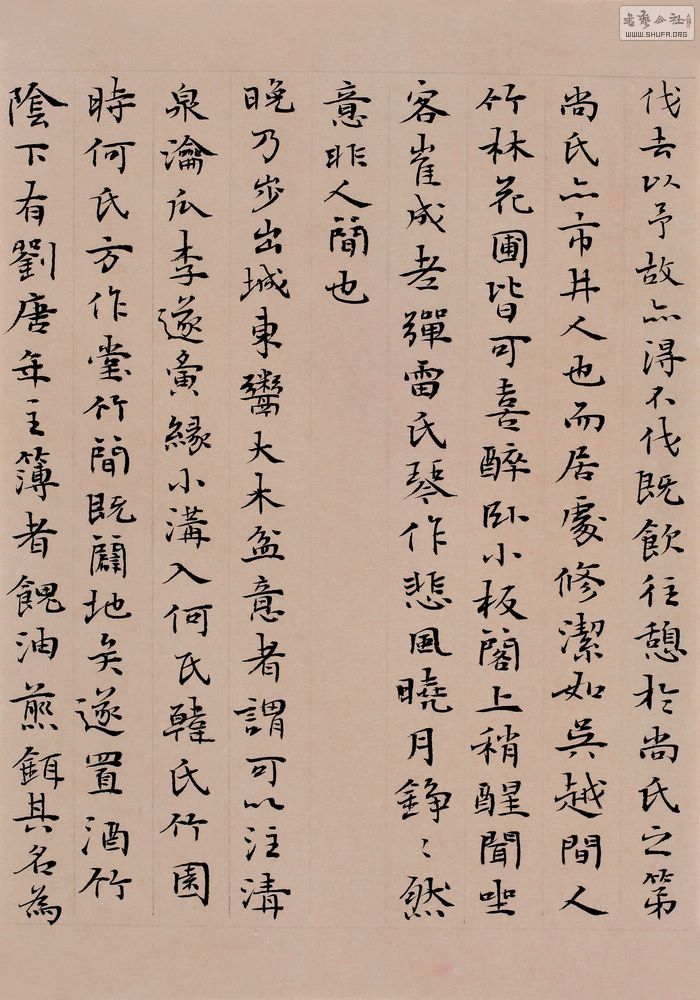 伐去以予故亦得不伐既飲往憩於尚氏之第
尚氏亦市井人也而居處修潔如吳越間人
竹林花圃皆可喜醉臥小板閣上稍醒聞坐
客崔成老彈雷氏琴作悲風曉月錚〻然
意非人間也
晚乃步出城東鬻大木盆意者謂可以注清
泉瀹瓜李遂夤緣小溝入何氏韓氏竹園
時何氏方作堂竹間既闢地矣遂置酒竹
陰下有劉唐年主簿者餽油煎餌其名為
書藝公社
WWW.SHUFA.ORG